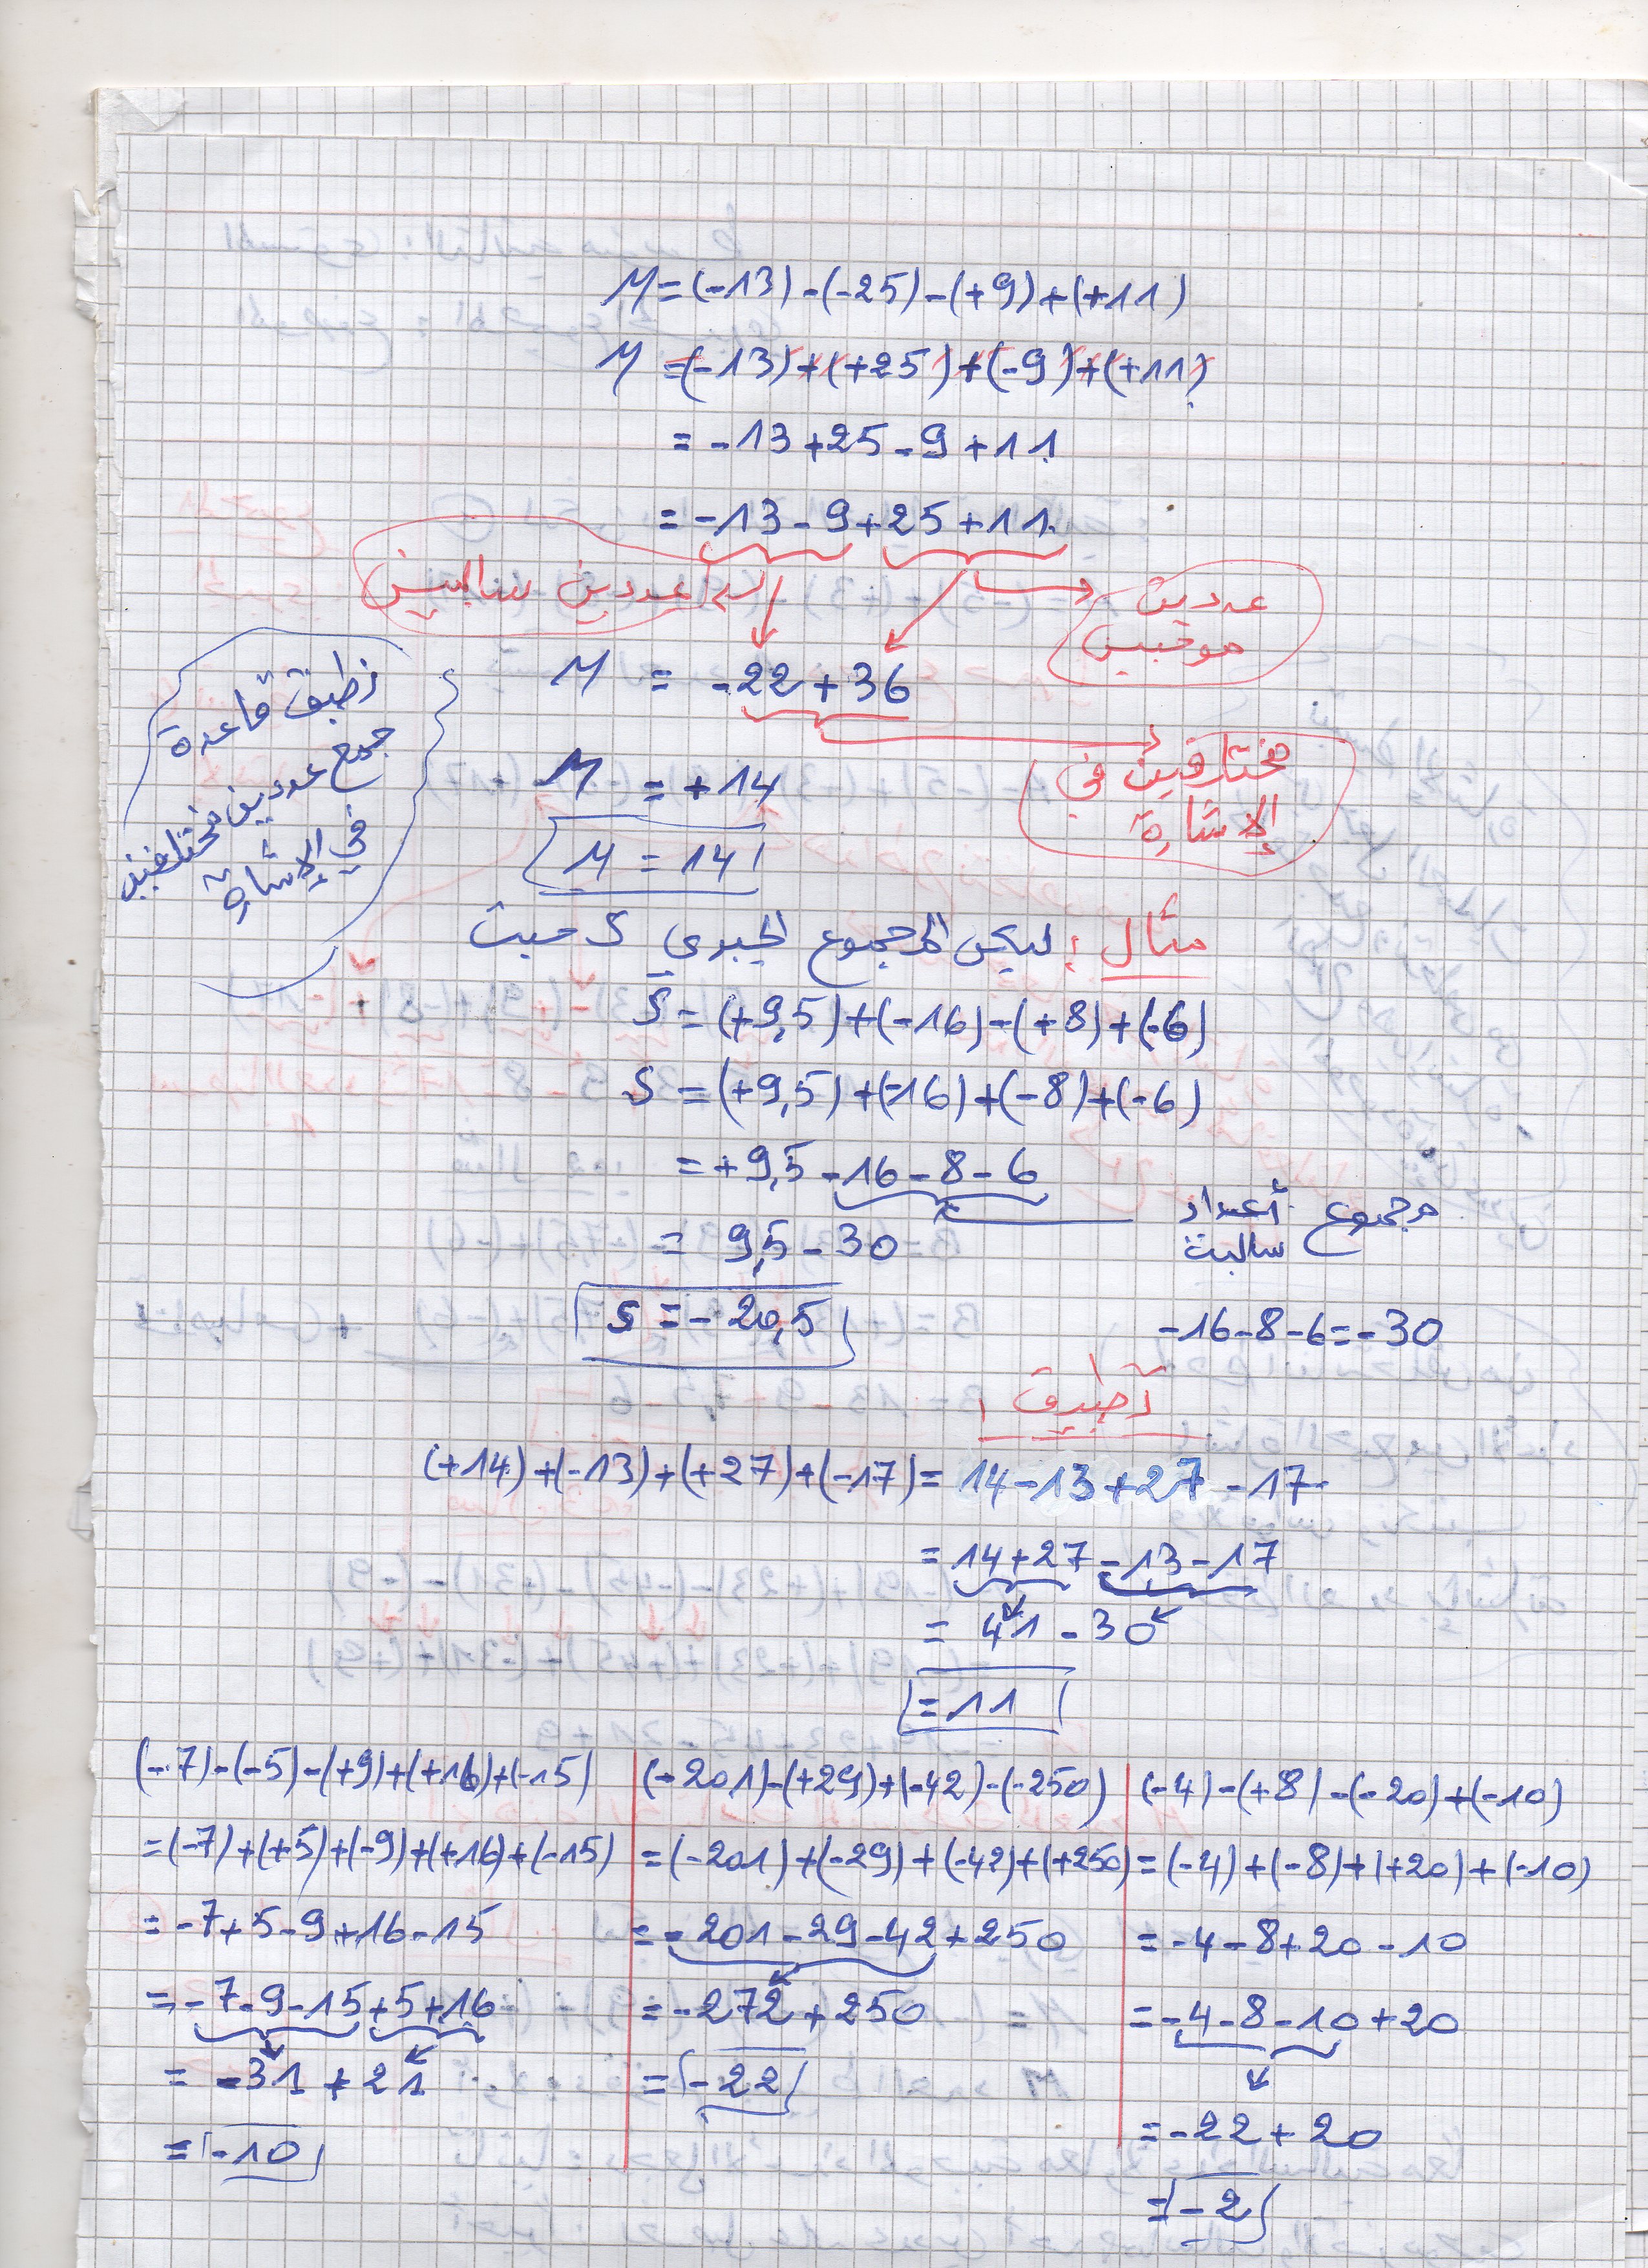 M = (-13) - (-25) - (+9) + (+11)
M = (-13) + (+25) + (-9) + (+11)
= -13 + 25 - 9 + 11
= -13 - 9 + 25 + 11
عددين سالبين
عددين
موجبين
M = -22 + 36
نطبق قاعدة
جمع عددين مختلفين
في الإشارة
مختلفين في
الإشارة
M = +14
M = 14
مثال : ليكن المجموع الجبري S حيث
S = (+9,5) + (-16) - (+8) + (-6)
S = (+9,5) + (-16) + (-8) + (-6)
= +9,5 - 16 - 8 - 6
مجموع أعداد
سالبة
= 9,5 - 30
S = -20,5
-16 - 8 - 6 = -30
تطبيق 1
(+14) + (-13) + (+27) + (-17) = 14 - 13 + 27 - 17
= 14 + 27 - 13 - 17
= 41 - 30
= 11
(-7) - (-5) - (+9) + (+16) + (-15)
= (-7) + (+5) + (-9) + (+16) + (-15)
= -7 + 5 - 9 + 16 - 15
= -7 - 9 - 15 + 5 + 16
= -31 + 21
= -10
(-201) - (+29) + (-42) - (-250)
= (-201) + (-29) + (-42) + (+250)
= -201 - 29 - 42 + 250
= -272 + 250
= -22
(-4) - (+8) - (-20) + (-10)
= (-4) + (-8) + (+20) + (-10)
= -4 - 8 + 20 - 10
= -4 - 8 - 10 + 20
= -22 + 20
= -2